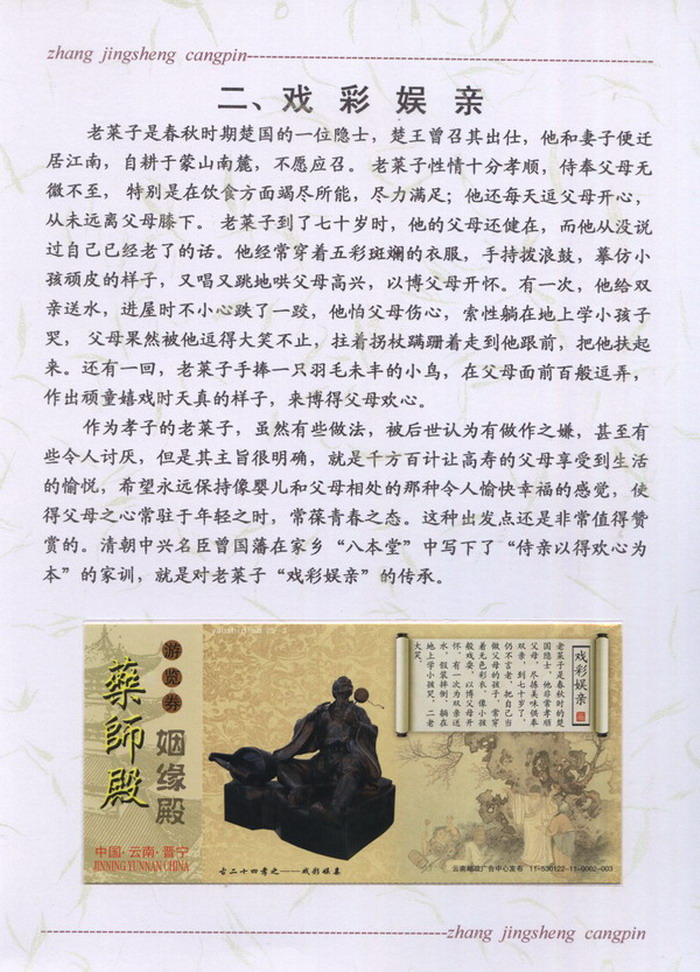 zhang jingsheng cangpin
二、戏 彩 娱 亲
老莱子是春秋时期楚国的一位隐士，楚王曾召其出仕，他和妻子便迁
居江南，自耕于蒙山南麓，不愿应召。老莱子性情十分孝顺，侍奉父母无
微不至， 特别是在饮食方面竭尽所能，尽力满足；他还每天逗父母开心，
从未远离父母膝下。 老莱子到了七十岁时，他的父母还健在，而他从没说
过自己已经老了的话。他经常穿着五彩斑斓的衣服，手持拨浪鼓，摹仿小
孩顽皮的样子，又唱又跳地哄父母高兴，以博父母开怀。有一次，他给双
亲送水，进屋时不小心跌了一跤，他怕父母伤心，索性躺在地上学小孩子
哭， 父母果然被他逗得大笑不止，拄着拐杖蹒跚着走到他跟前，把他扶起
来。还有一回，老莱子手捧一只羽毛未丰的小鸟，在父母面前百般逗弄，
作出顽童嬉戏时天真的样子，来博得父母欢心。
作为孝子的老莱子，虽然有些做法，被后世认为有做作之嫌，甚至有
些令人讨厌，但是其主旨很明确，就是千方百计让高寿的父母享受到生活
的愉悦，希望永远保持像婴儿和父母相处的那种令人愉快幸福的感觉，使
得父母之心常驻于年轻之时，常葆青春之态。这种出发点还是非常值得赞
赏的。清朝中兴名臣曾国藩在家乡“八本堂”中写下了“侍亲以得欢心为
本”的家训，就是对老莱子“戏彩娱亲”的传承。
游览券
藥師殿
姻缘殿
中国·云南·晋宁
JINNING YUNNAN CHINA
古二十四孝之——戏彩娱亲
戏彩娱亲
老莱子是春秋时的楚
国隐士，他非常孝顺
父母，尽拣美味供奉
双亲，到七十岁了，
仍不言老，把自己当
做父母的孩子，常穿
着无色彩衣，像小孩
般戏耍，以博父母开
怀。有一次为双亲送
水，假装摔倒，躺在
地上学小孩哭，二老
大笑。
云南邮政广告中心发布 11-530122-11-0002-003
zhang jingsheng cangpin